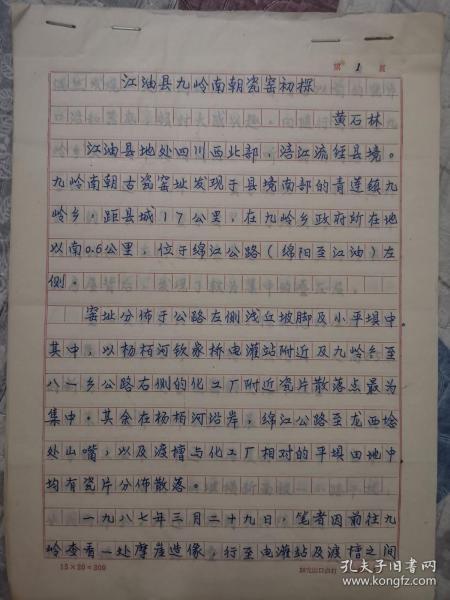 第 1 页
江油县九岭南朝瓷窑初探
黄石林
江油县地处四川西北部，涪江流经县境。
九岭南朝古瓷窑址发现于县境南部的青莲镇九
岭乡，距县城17公里，在九岭乡政府所在地
以南0.6公里，位于绵江公路（绵阳至江油）左
侧。
窑址分佈于公路左侧浅丘坡脚及小平坝中
其中，以杨柏河钦家桥电灌站附近及九岭乡至
八一乡公路右侧的化工厂附近瓷片散落点最为
集中。其余在杨柏河沿岸，绵江公路至龙西埝
处山嘴，以及渡槽与化工厂相对的平坝田地中
均有瓷片分佈散落。
一九八七年三月二十九日，笔者因前往九
岭查看一处摩崖造像，行至电灌站及渡槽之间
15×20=300
孔夫子旧书网